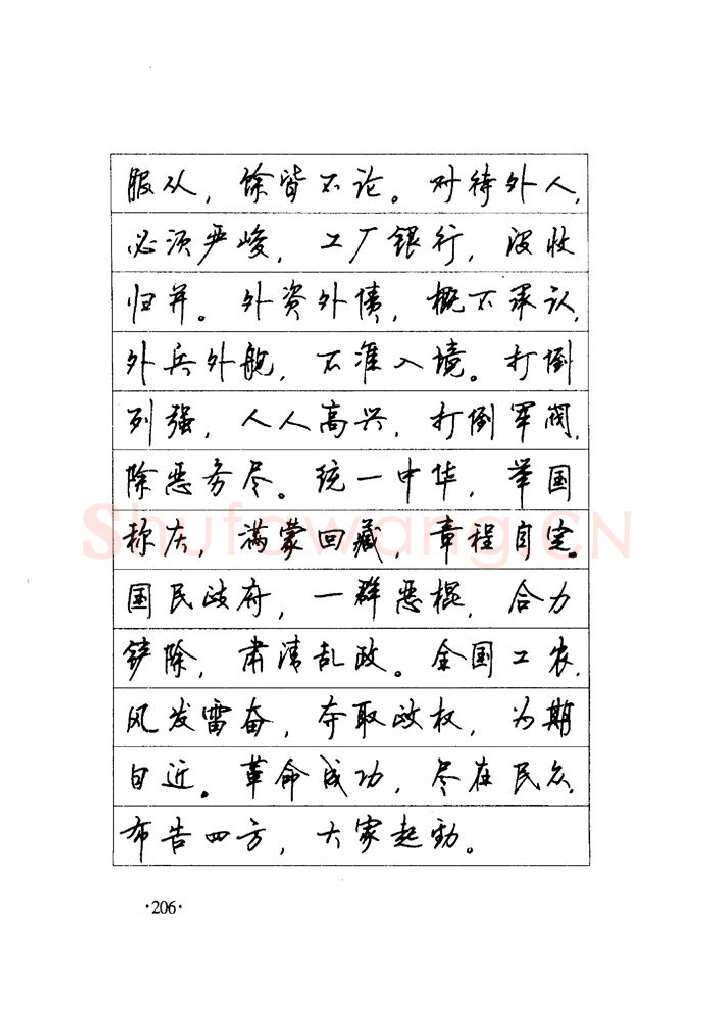 服从，馀皆不论。对待外人，
必须严峻，工厂银行，没收
归并。外资外债，概不承认，
外兵外舰，不准入境。打倒
列强，人人高兴，打倒军阀，
除恶务尽。统一中华，举国
称庆，满蒙回藏，章程自定。
国民政府，一群恶棍，合力
铲除，肃清乱政。全国工农，
风发雷奋，夺取政权，为期
日近。革命成功，尽在民众，
布告四方，大家起动。
Shufawang.CN
·206·